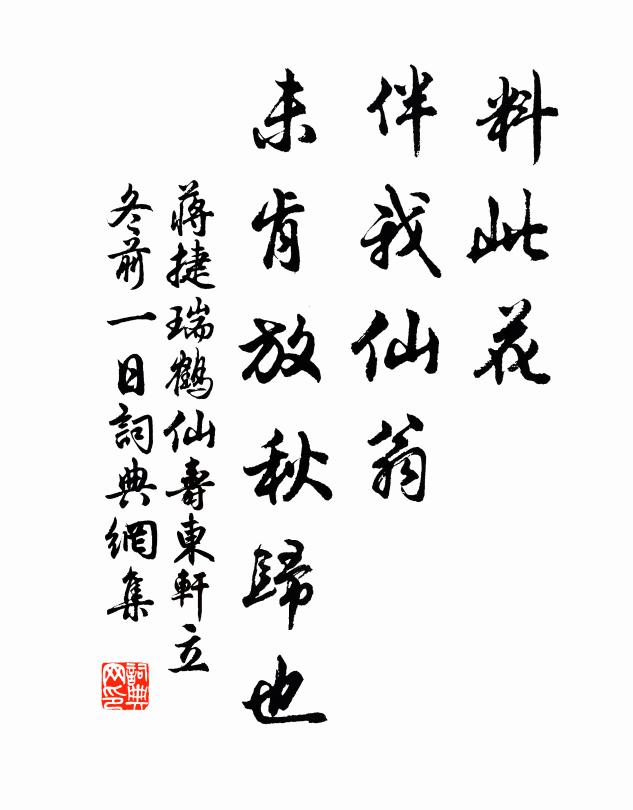 料此花
伴我仙翁
未肯放秋歸也
蔣捷瑞鶴仙壽東軒立
冬前一日詞典網集
詞典
网印